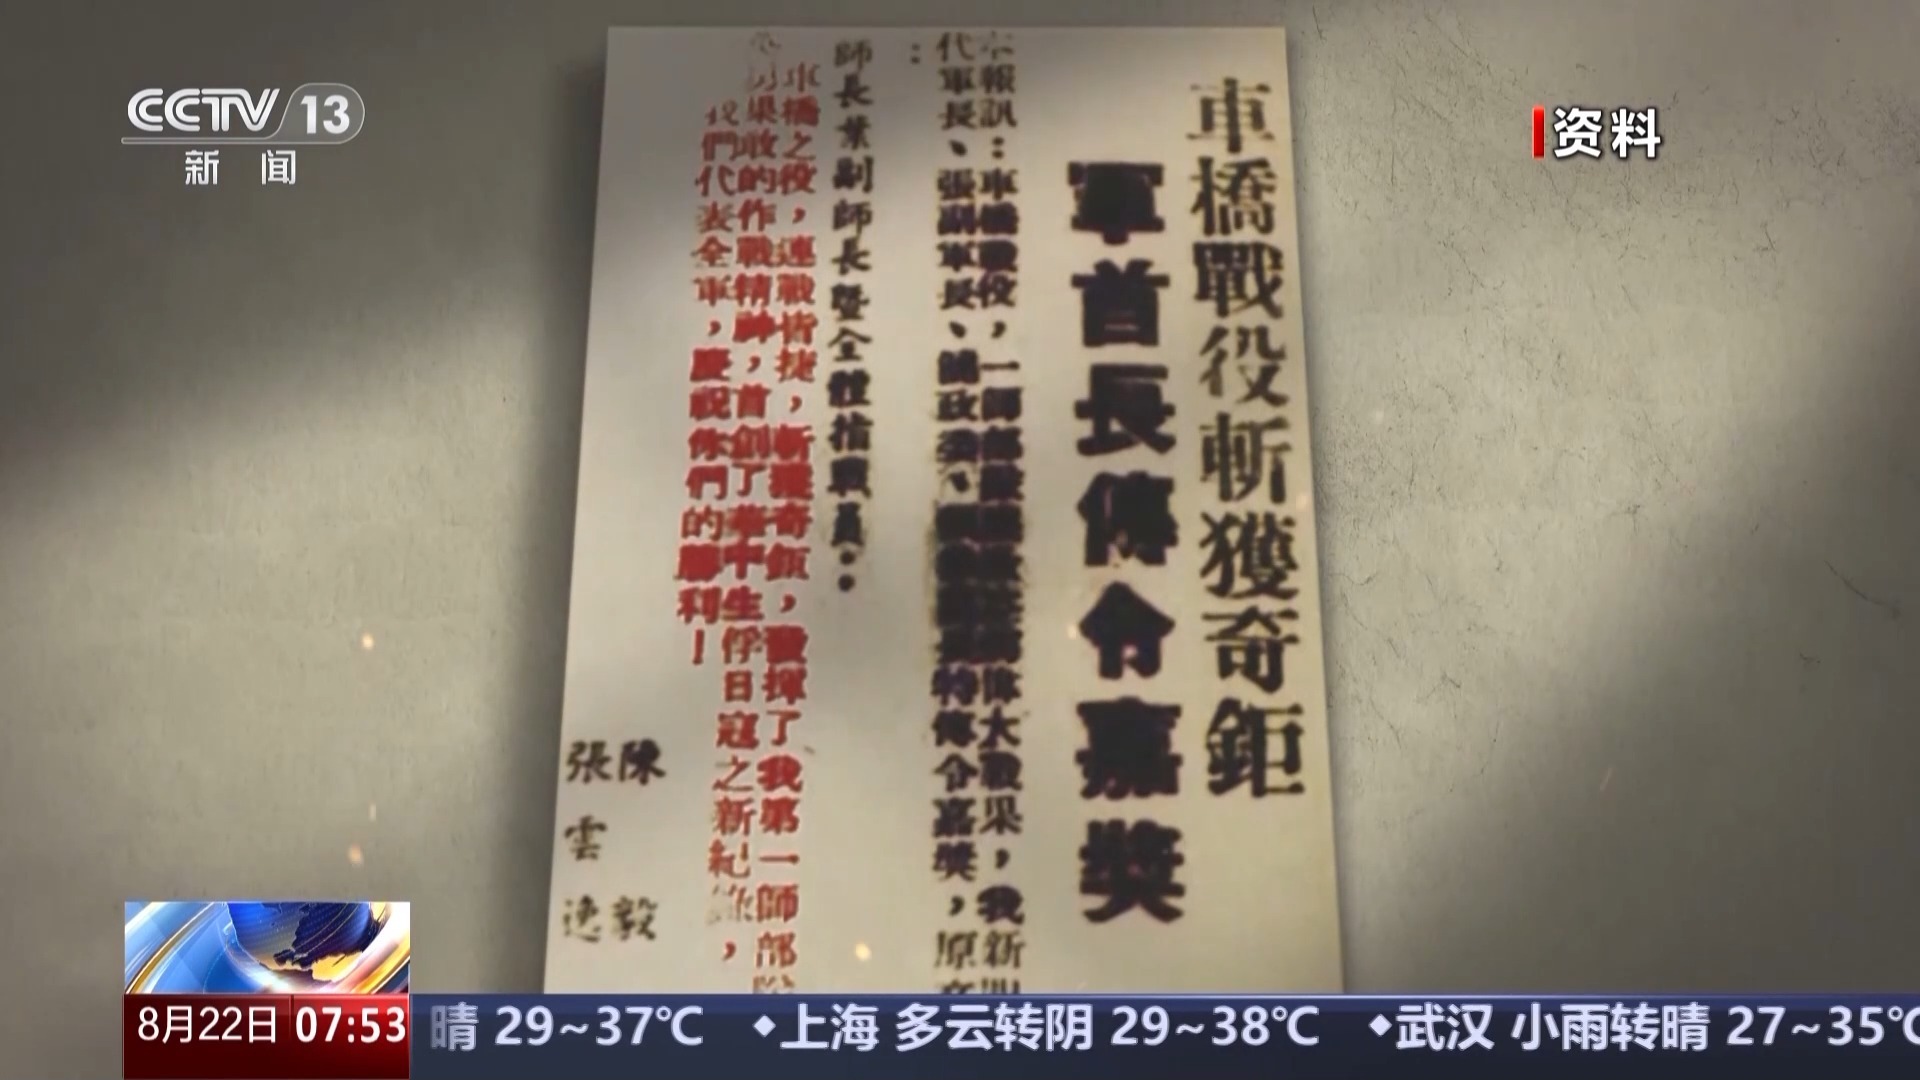 CCTV 13
新闻
资料
車橋戰役斬獲奇鉅
軍首長傳令嘉獎
本報訊：車橋戰役，一師部隊偉大戰果，我新四
代軍長、張副軍長、饒政委、特傳令嘉獎，原文
：
師長葉副師長暨全體指戰員：
車橋之役，連戰皆捷，斬獲奇鉅，發揮了我第一師部隊
勇果敢的作戰精神，首創了華中生俘日寇之新紀錄，
我們代表全軍，慶祝你們的勝利！
陳毅
張雲逸
8月22日 07:53
晴 29~37℃ ◆上海 多云转阴 29~38℃ ◆武汉 小雨转晴 27~35℃